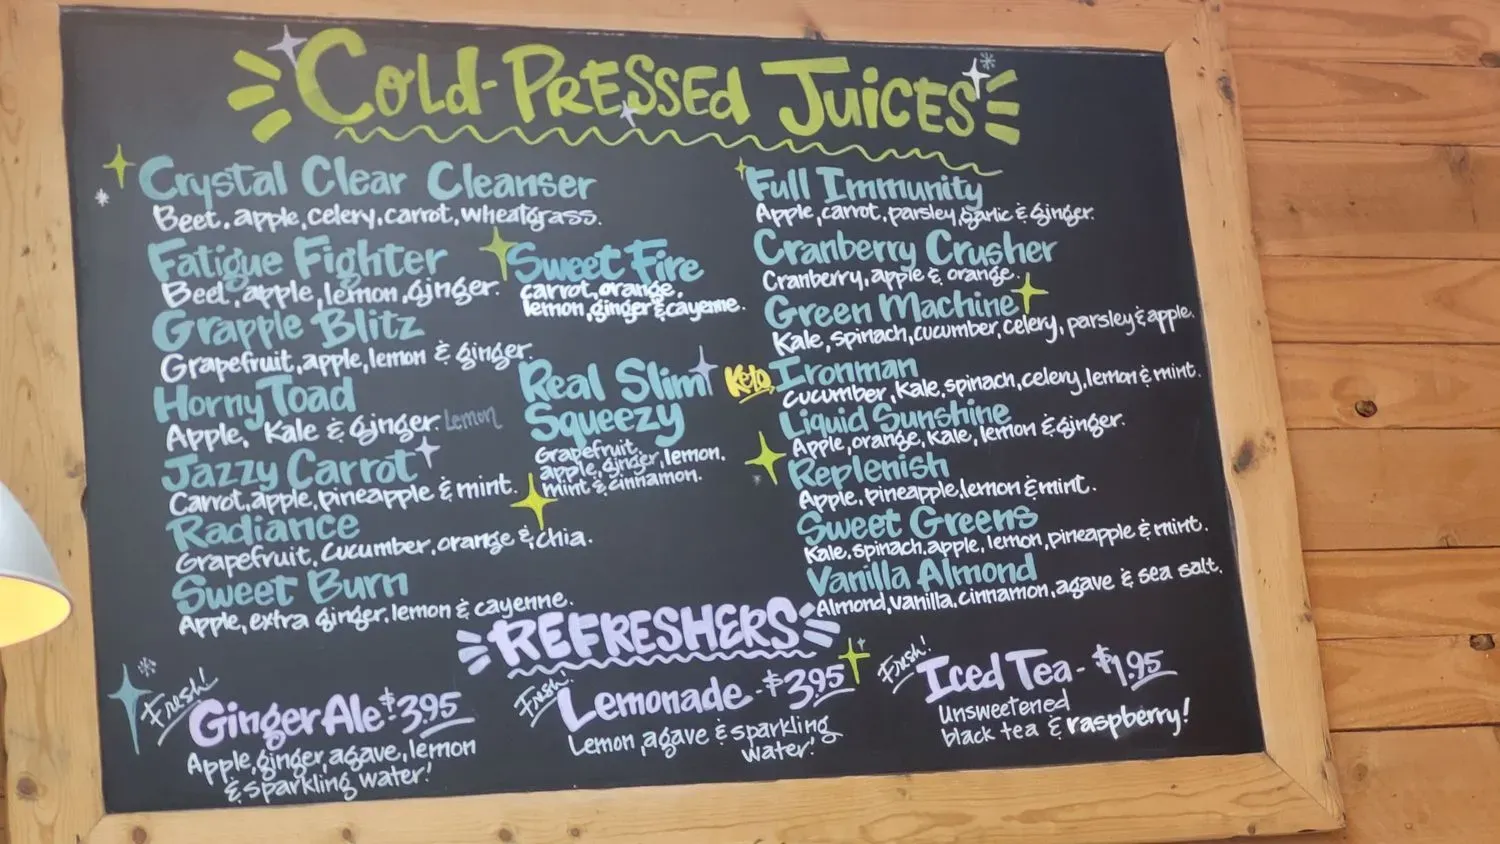 Cold-Pressed Juices
Crystal Clear Cleanser
Beet, apple, celery, carrot, wheatgrass.
Fatigue Fighter
Beet, apple, lemon, ginger.
Grapple Blitz
Grapefruit, apple, lemon & ginger.
Horny Toad
Apple, Kale & ginger Lemon
Jazzy Carrot
Carrot, apple, pineapple & mint.
Radiance
Grapefruit, cucumber, orange & chia.
Sweet Burn
Apple, extra ginger, lemon & cayenne.
Sweet Fire
carrot, orange,
lemon, ginger & cayenne.
Real Slim
Squeezy
Grapefruit,
apple, ginger, lemon,
mint & cinnamon.
Full Immunity
Apple, carrot, parsley, garlic & ginger.
Cranberry Crusher
Cranberry, apple & orange.
Green Machine
Kale, spinach, cucumber, celery, parsley & apple.
Keto Ironman
Cucumber, Kale, spinach, celery, lemon & mint.
Liquid Sunshine
Apple, orange, Kale, lemon & ginger.
Replenish
Apple, pineapple, lemon & mint.
Sweet Greens
Kale, spinach, apple, lemon, pineapple & mint.
Vanilla Almond
Almond, vanilla, cinnamon, agave & sea salt.
REFRESHERS
Fresh!
Ginger Ale $3.95
Apple, ginger, agave, lemon
& sparkling water!
Fresh!
Lemonade - $3.95
Lemon, agave & sparkling
water!
Fresh!
Iced Tea - $1.95
Unsweetened
black tea & raspberry!